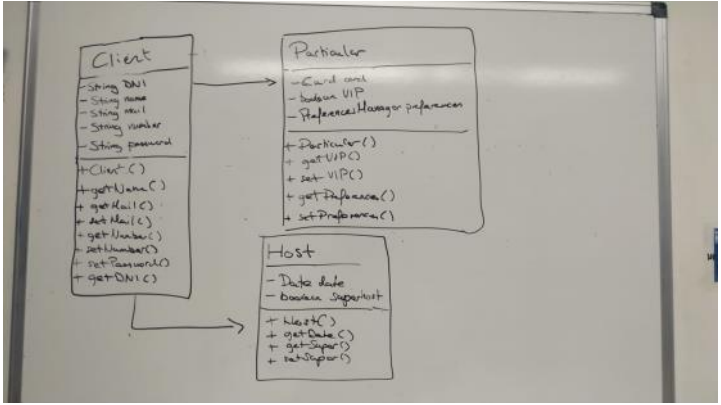 Client
- String DNI
- String name
- String mail
- String number
- String password
+ Client()
+ getName()
+ getMail()
+ setMail()
+ getNumber()
- setNumber()
- setPassword()
+ getDNI()
Particular
- Card card
- boolean VIP
- PreferencesManager preferences
+ Particular()
+ getVIP()
+ set VIP()
+ getPreferences()
+ setPreferences()
Host
- Date date
- boolean Superhost
+ Host()
+ getDate()
+ getSuper()
+ setSuper()